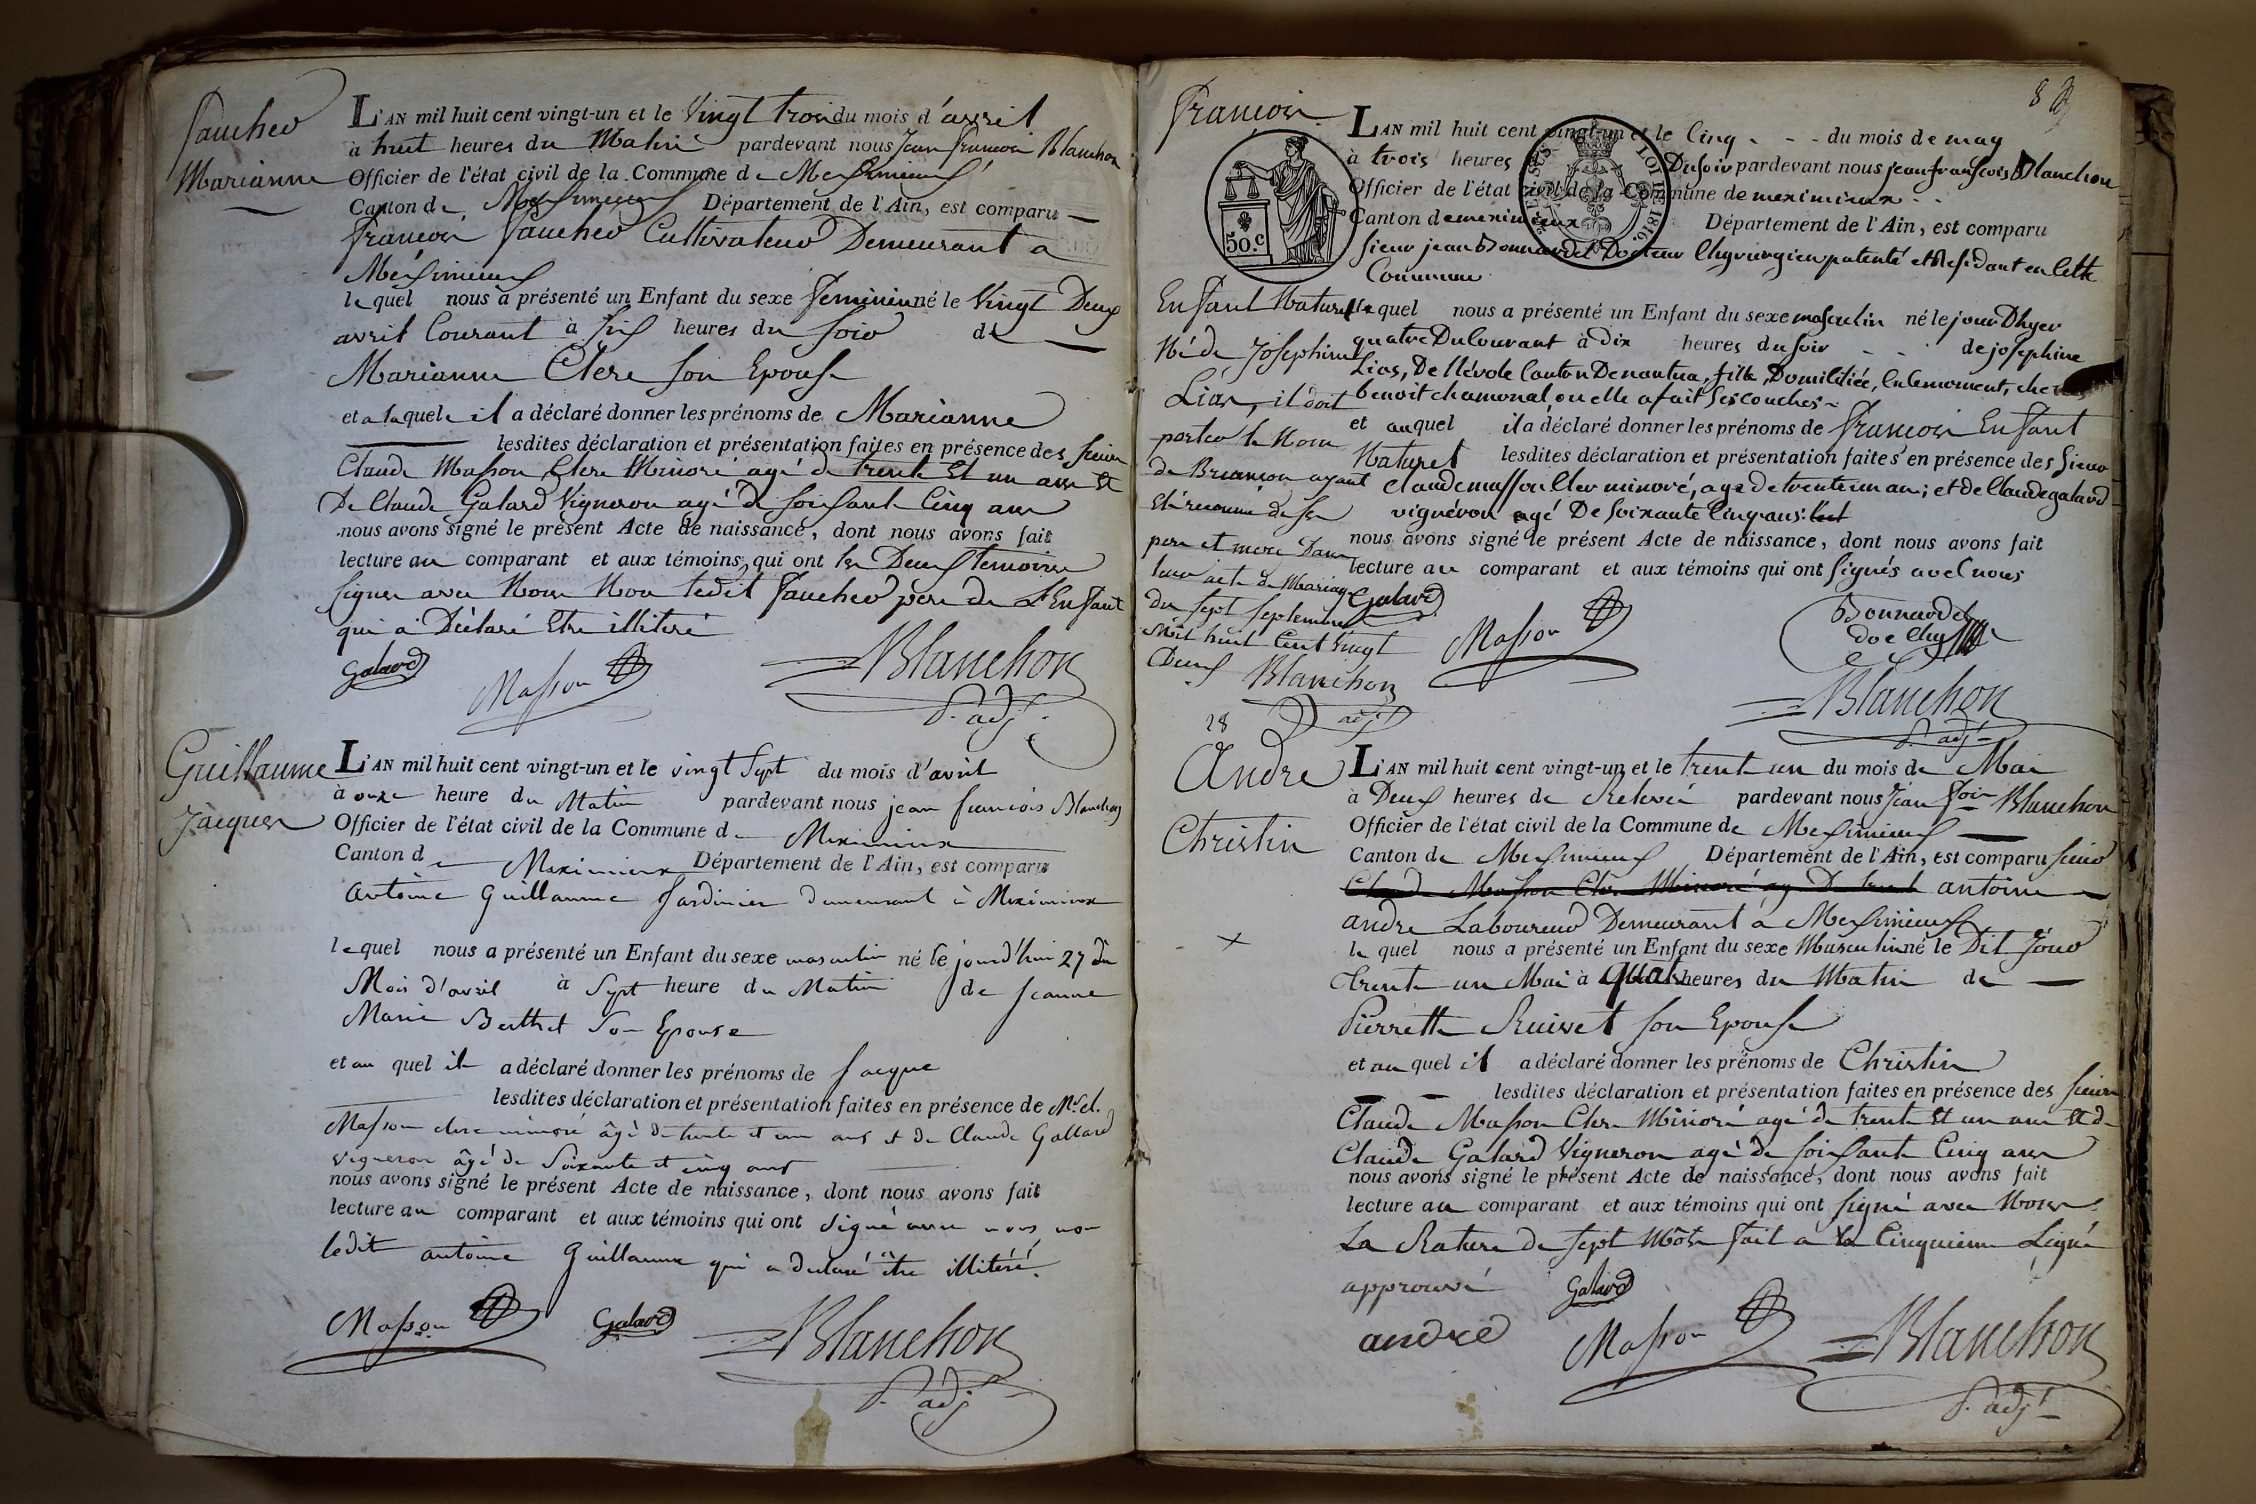 faucheo
Marianne
L'AN mil huit cent vingt-un et le Vingt trois du mois d'avril
à huit heures du Matin pardevant nous Jean francois Blanchon
Officier de l'état civil de la Commune de Meximieux
Canton de Meximieux Département de l'Ain, est comparu
francois faucheo Cultivateur Demeurant a
Meximieux
lequel nous a présenté un Enfant du sexe feminin né le Vingt Deux
avril Courant à six heures du soir de
Marianne Clere son Epouse
et a laquelle il a déclaré donner les prénoms de Marianne
lesdites déclaration et présentation faites en présence des sieurs
Claude Masson Clere Minoré agé de trente Et un ans Et
De Claude Galard Vigneron agé de soixante Cinq ans
nous avons signé le présent Acte de naissance, dont nous avons fait
lecture au comparant et aux témoins qui ont les Deux temoins
signer avec Nous Non ledit faucheo pere de L'Enfant
qui a Déclaré Etre illiteré
Galard Masson Blanchon
adjt
Guillaume
Jacques
L'AN mil huit cent vingt-un et le vingt Sept du mois d'avril
à onze heure du Matin pardevant nous jean francois Blanchon
Officier de l'état civil de la Commune de Meximieux
Canton de Meximieux Département de l'Ain, est comparu
Antoine Guillaume Jardinier demeurant à Meximieux
lequel nous a présenté un Enfant du sexe masculin né le jourd'hui 27 du
Mois d'avril à Sept heure du Matin de Jeanne
Marie Berthet Son Epouse
et au quel il a déclaré donner les prénoms de Jacque
lesdites déclaration et présentation faites en présence de Mr. cl.
Masson clerc minoré âgé de trente et un ans et de Claude Gallard
vigneron âgé de Soixante et cinq ans
nous avons signé le présent Acte de naissance, dont nous avons fait
lecture au comparant et aux témoins qui ont signé avec nous non
ledit antoine Guillaume qui a declaré être illitéré.
Masson Galard Blanchon
adjt
françois
50.c
LOI DE 1816.
L'AN mil huit cent vingt-un et le Cinq du mois de may
à trois heures Du soir pardevant nous jean franscois Blanchon
Officier de l'état civil de la Commune de meximieux
Canton de meximieux Département de l'Ain, est comparu
sieur jean Bonnardel Docteur Chyrurgien patenté et Residant en Cette
Commune
lequel nous a présenté un Enfant du sexe masculin né le jour D'hyer
quatre Du Courant à dix heures du soir de josephine
Lias, De llévole Canton De nantua, fille, Domiliciée, En Cemoment, chez
benoit chamonal, ou elle a fait ses couches
et auquel il a déclaré donner les prénoms de françois Enfant
Naturel lesdites déclaration et présentation faites en présence des sieur
Claude masson Cler minoré, age de trente un an; et de Claude galard
vigneron agé De soixante Cinq ans
nous avons signé le présent Acte de naissance, dont nous avons fait
lecture au comparant et aux témoins qui ont signés avec nous
Galard Masson Bonnardel
doc chy
Blanchon
adjt
Enfant Naturel
Né de Josephine
Lias, il doit
porter le Nom
de Briançon ayant
été reconnu de ses
pere et mere Dans
leur acte de Mariage
du sept septembre
Mil huit Cent Vingt
Deux
Blanchon
adjt
28
Andre
Christin
L'AN mil huit cent vingt-un et le trent un du mois de Mai
à Deux heures de Relevée pardevant nous Jean fois Blanchon
Officier de l'état civil de la Commune de Meximieux
Canton de Meximieux Département de l'Ain, est comparu sieur
Claude Masson Clere Minoré ag De trent antoine
andre Laboureur Demeurant a Meximieux
le quel nous a présenté un Enfant du sexe Masculin né le Dit Jour
trente un Mai à quatre heures du Matin de
Pierrette Ruivet son Epouse
et au quel il a déclaré donner les prénoms de Christin
lesdites déclaration et présentation faites en présence des sieurs
Claude Masson Clere Minoré agé de trente Et un ans Et de
Claude Galard Vigneron agé de soixante Cinq ans
nous avons signé le présent Acte de naissance, dont nous avons fait
lecture au comparant et aux témoins qui ont signé avec Nous.
La Rature de sept Mots fait a la Cinquieme Ligne
approuvé Galard
andre Masson Blanchon
adjt